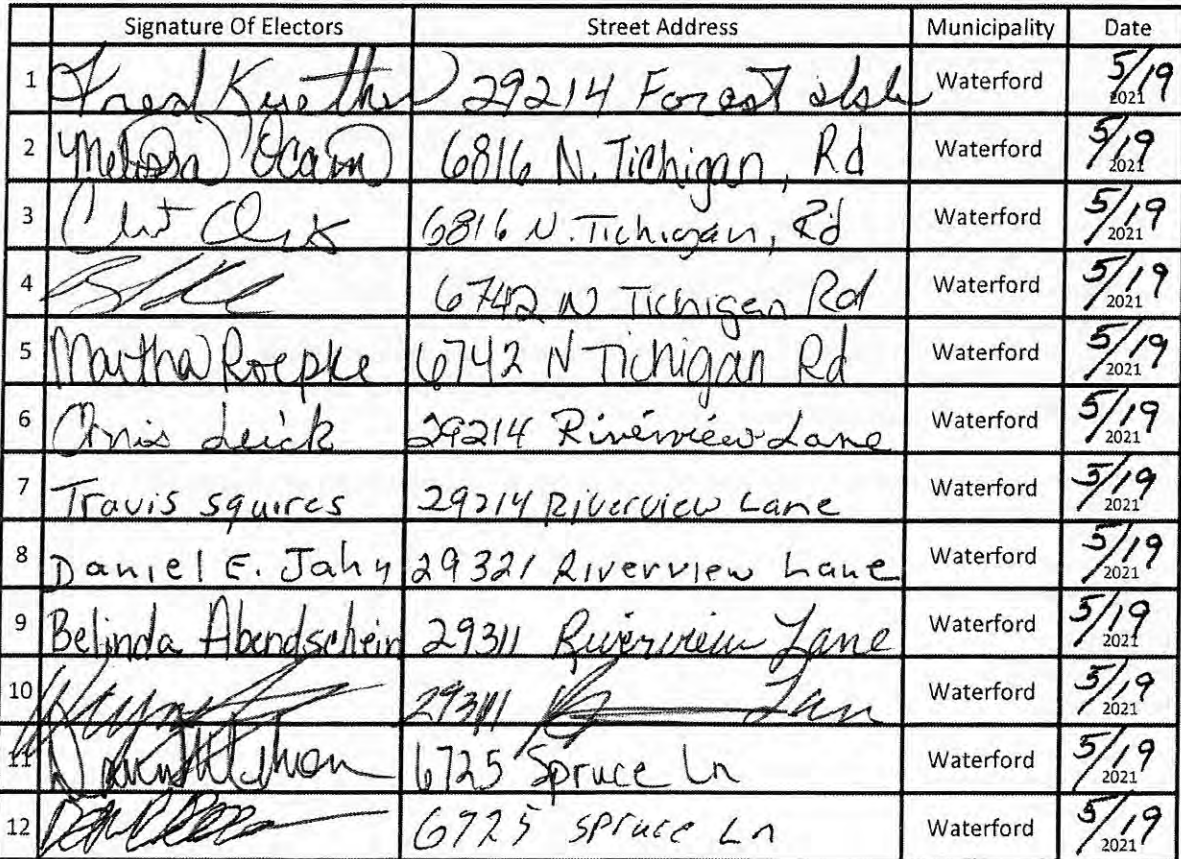 Signature Of Electors Street Address Municipality Date
1 Fred Kuether 29214 Forest Isle Waterford 5/19 2021
2 Melissa 6816 N. Tichigan, Rd Waterford 5/19 2021
3 6816 N. Tichigan, Rd Waterford 5/19 2021
4 6742 N Tichigan Rd Waterford 5/19 2021
5 Martha Roepke 6742 N Tichigan Rd Waterford 5/19 2021
6 Chris Leick 29214 Riverview Lane Waterford 5/19 2021
7 Travis Squires 29214 Riverview Lane Waterford 5/19 2021
8 Daniel E. Jahn 29321 Riverview Lane Waterford 5/19 2021
9 Belinda Abendschein 29311 Riverview Lane Waterford 5/19 2021
10 29311 Lane Waterford 5/19 2021
11 6725 Spruce Ln Waterford 5/19 2021
12 6725 Spruce Ln Waterford 5/19 2021